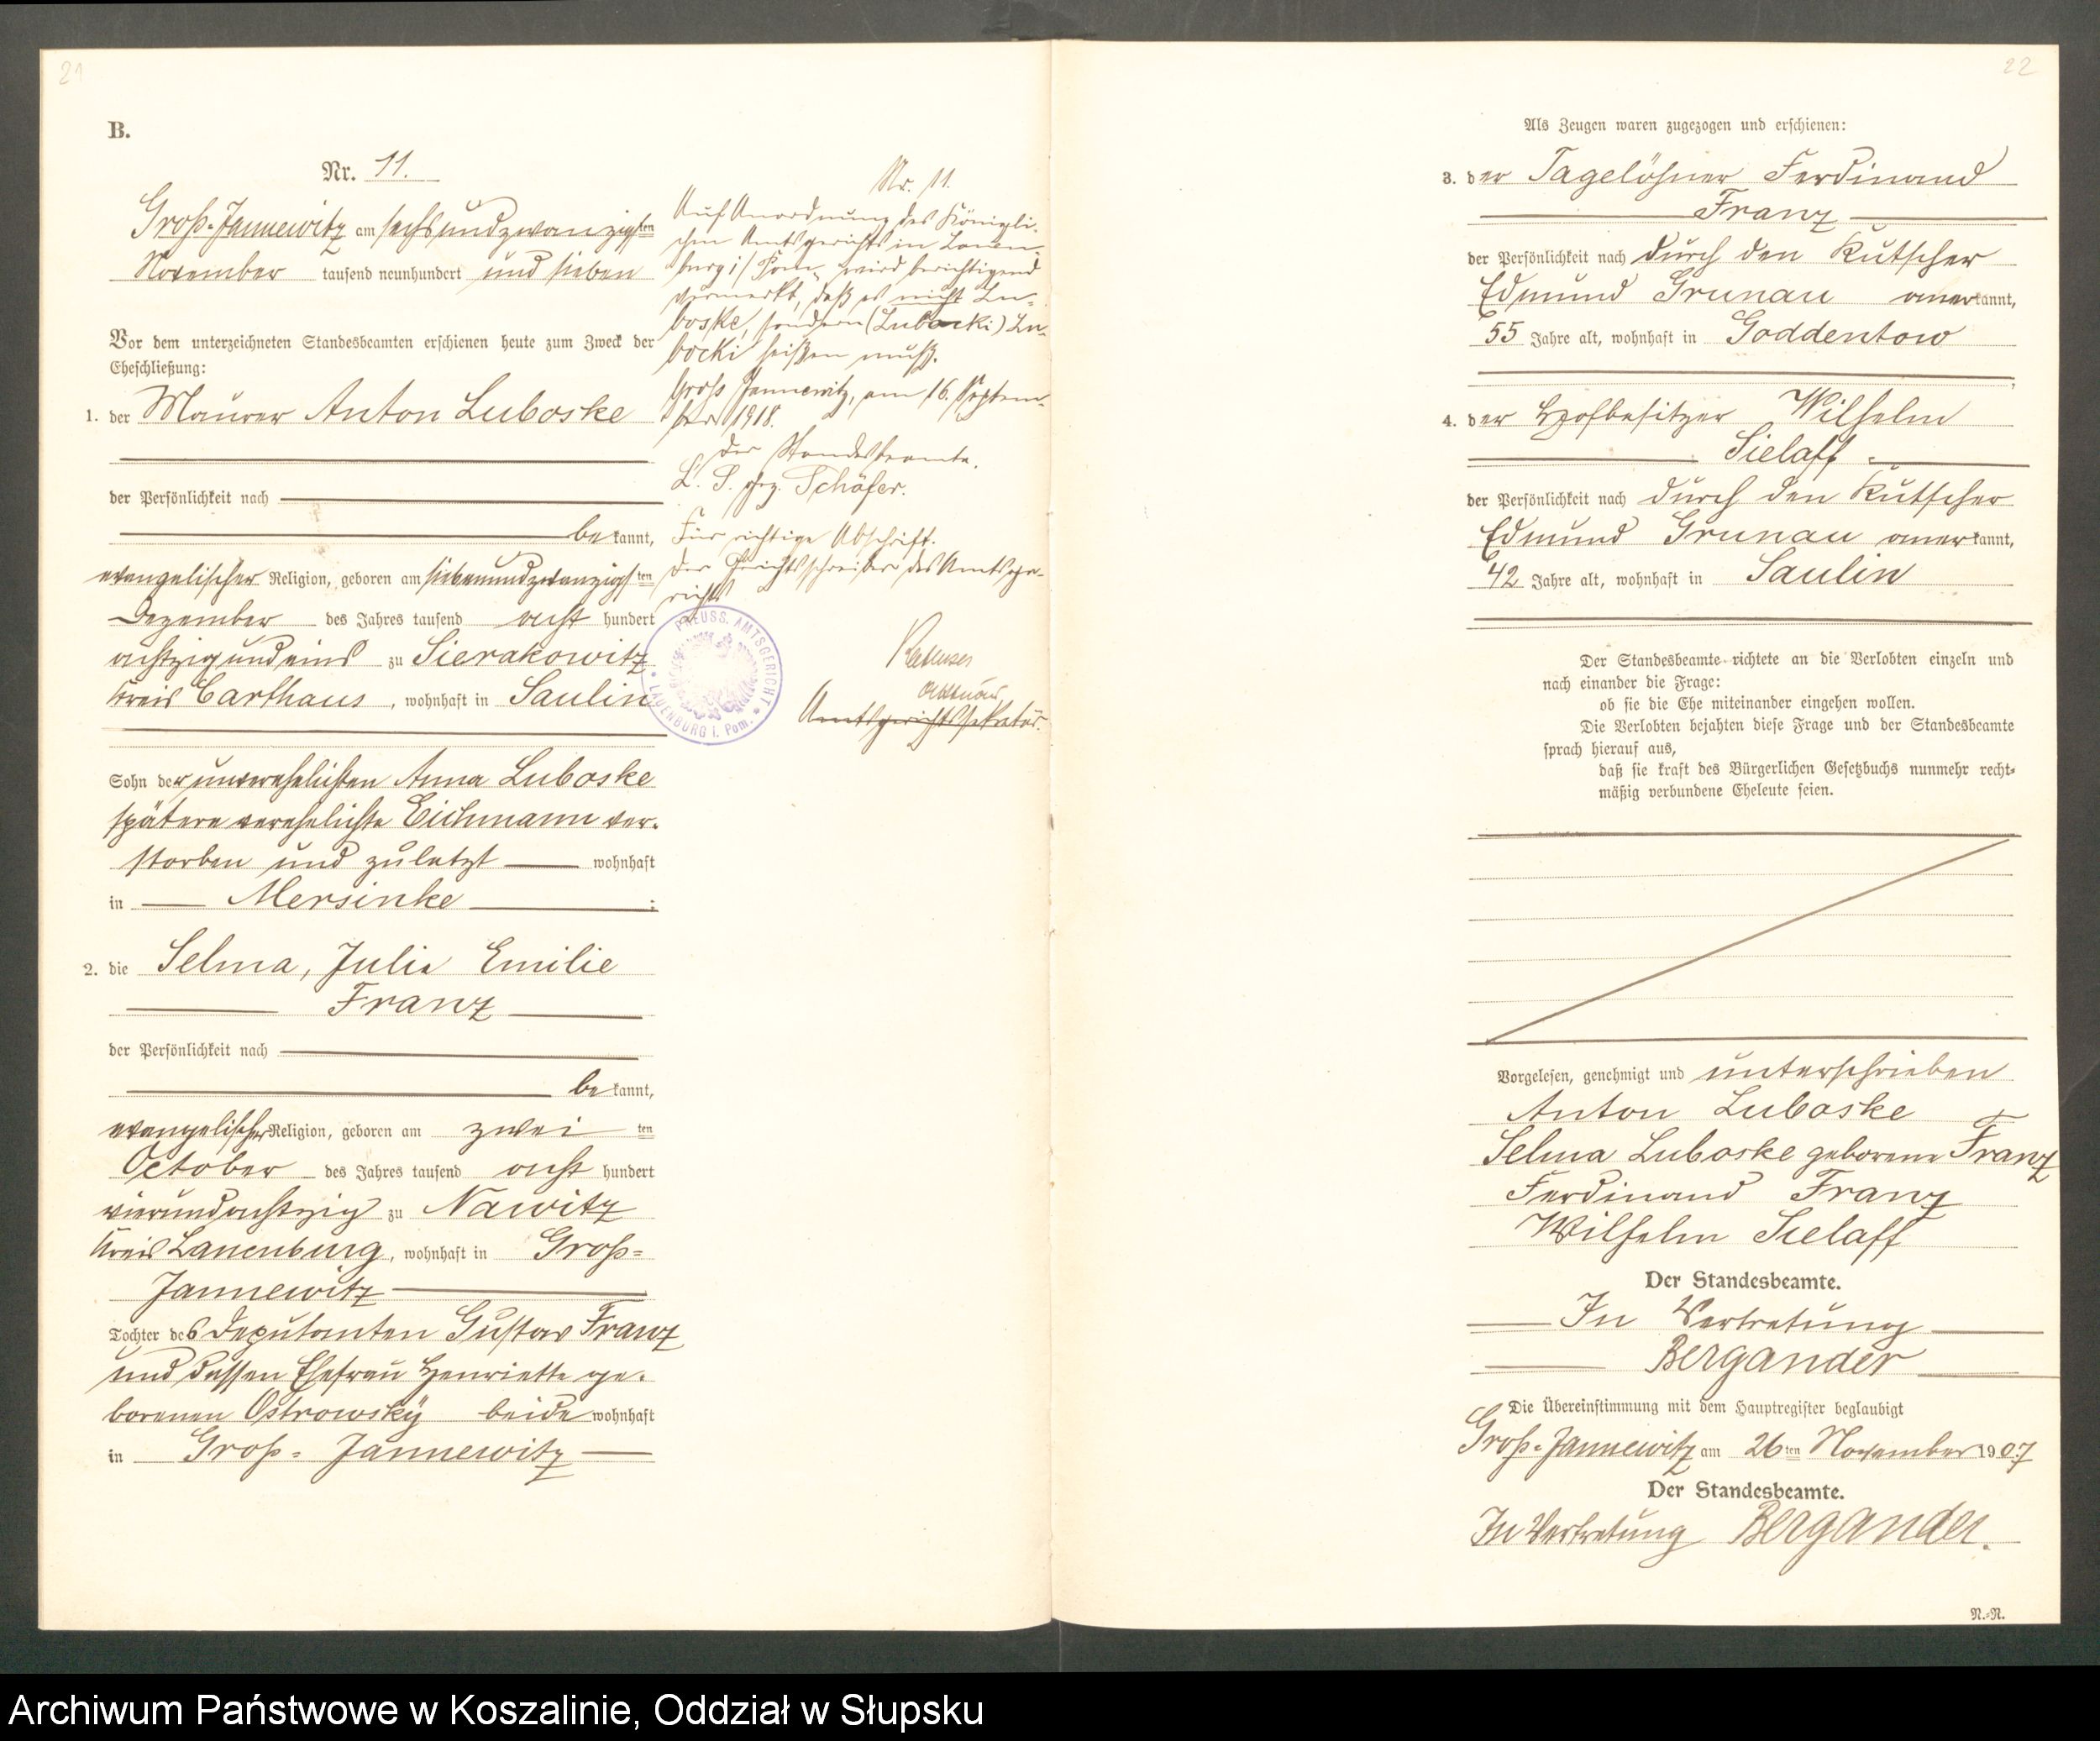 21
B.
Nr. 11.
Groß-Jannewitz am sechsundzwanzigsten
November tausend neunhundert und sieben
Vor dem unterzeichneten Standesbeamten erschienen heute zum Zweck der
Eheschließung:
1. der Maurer Anton Luboske
der Persönlichkeit nach
bekannt,
evangelischer Religion, geboren am siebenundzwanzigsten
Dezember des Jahres tausend acht hundert
achtzig und eins zu Sierakowitz
Kreis Carthaus, wohnhaft in Saulin
Sohn der unverehelichten Anna Luboske
spätere verehelichte Eichmann ver-
storben und zuletzt wohnhaft
in Mersinke ;
2. die Selma, Julie Emilie
Franz
der Persönlichkeit nach
bekannt,
evangelischer Religion, geboren am zweiten
October des Jahres tausend acht hundert
vierundachtzig zu Nawitz
Kreis Lauenburg, wohnhaft in Groß-
Jannewitz
Tochter des Deputanten Gustav Franz
und dessen Ehefrau Henriette ge-
borenen Ostrowsky beide wohnhaft
in Groß-Jannewitz
Nr. 11.
Auf Anordnung des Königli-
chen Amtsgerichts in Lauen-
burg i/Pom. wird berichtigend
vermerkt, daß es nicht Lu-
boske, sondern (Lubocki) Lu-
bocki heißen muß.
Groß Jannewitz, am 16. Septem-
ber 1918.
Der Standesbeamte.
L. S. gez. Schäfer.
Für richtige Abschrift.
Der Gerichtsschreiber des Amtsge-
richts
PREUSS. AMTSGERICHT * LAUENBURG i. Pom. *
Aktuar
Amtsgerichtssekretär.
22
Als Zeugen waren zugezogen und erschienen:
3. der Tagelöhner Ferdinand
Franz
der Persönlichkeit nach durch den Kutscher
Edmund Grunau anerkannt,
55 Jahre alt, wohnhaft in Goddentow
;
4. der Hofbesitzer Wilhelm
Sielaff
der Persönlichkeit nach durch den Kutscher
Edmund Grunau anerkannt,
42 Jahre alt, wohnhaft in Saulin
Der Standesbeamte richtete an die Verlobten einzeln und
nach einander die Frage:
ob sie die Ehe miteinander eingehen wollen.
Die Verlobten bejahten diese Frage und der Standesbeamte
sprach hierauf aus,
daß sie kraft des Bürgerlichen Gesetzbuchs nunmehr recht-
mäßig verbundene Eheleute seien.
Vorgelesen, genehmigt und unterschrieben
Anton Luboske
Selma Luboske geborene Franz
Ferdinand Franz
Wilhelm Sielaff
Der Standesbeamte.
In Vertretung
Bergander
Die Übereinstimmung mit dem Hauptregister beglaubigt
Groß-Jannewitz am 26ten November 1907
Der Standesbeamte.
In Vertretung Bergander.
N.-N.
Archiwum Państwowe w Koszalinie, Oddział w Słupsku